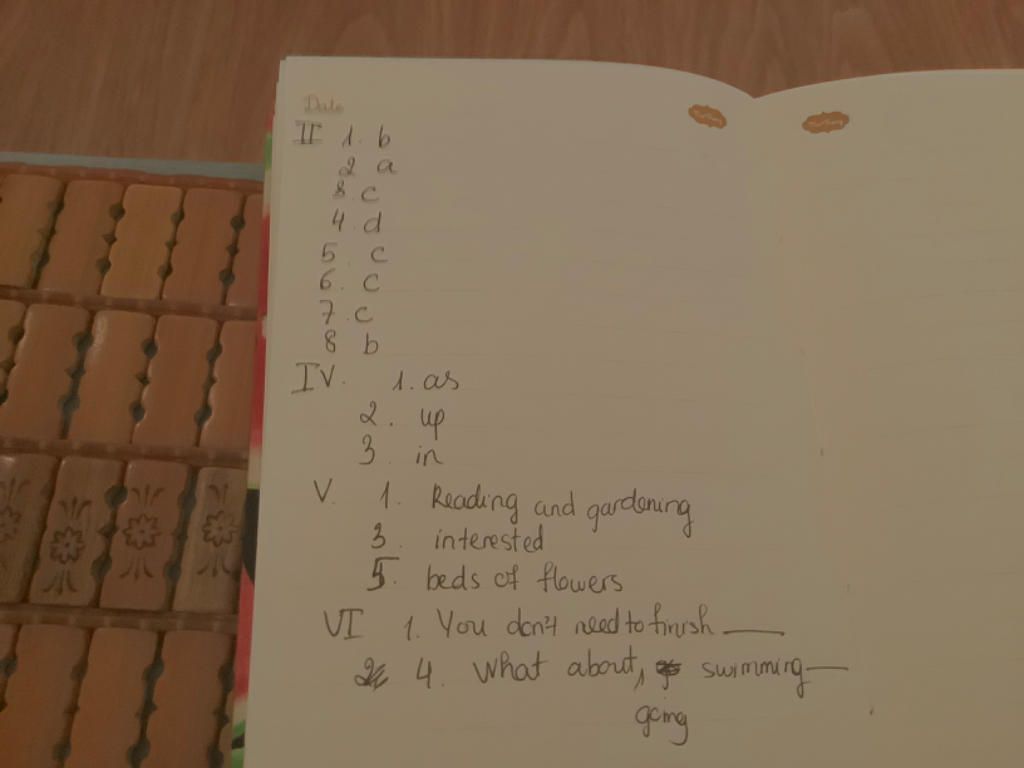 Date
II 1. b
2 a
3. c
4. d
5. c
6. c
7. c
8 b
IV. 1. as
2. up
3. in
V. 1. Reading and gardening
3. interested
5. beds of flowers
VI 1. You don't need to finish
4. What about, swimming
going